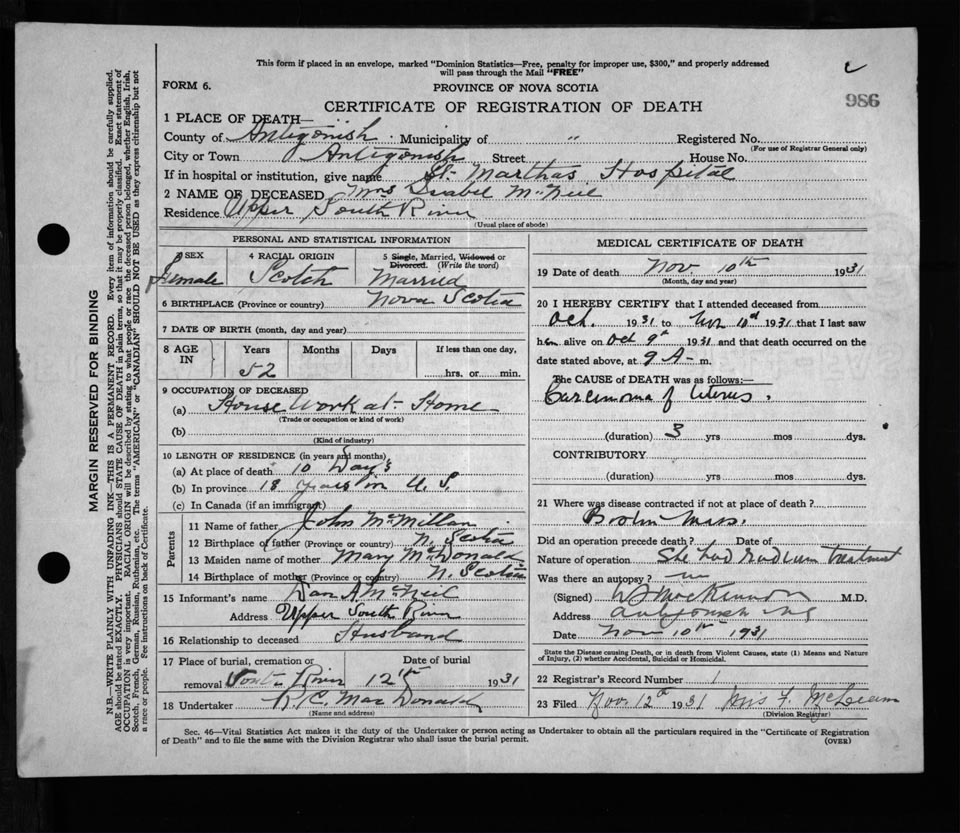 This form if placed in an envelope, marked "Dominion Statistics—Free, penalty for improper use, $300," and properly addressed
will pass through the Mail "FREE"
FORM 6.
PROVINCE OF NOVA SCOTIA
986
CERTIFICATE OF REGISTRATION OF DEATH
1 PLACE OF DEATH—
County of Antigonish Municipality of " Registered No.
(For use of Registrar General only)
City or Town Antigonish Street House No.
If in hospital or institution, give name St. Marthas Hospital
2 NAME OF DECEASED Mrs Isabel McNeil
Residence Upper South River
(Usual place of abode)
PERSONAL AND STATISTICAL INFORMATION
3 SEX
Female
4 RACIAL ORIGIN
Scotch
5 Single, Married, Widowed or
Divorced. (Write the word)
Married
6 BIRTHPLACE (Province or country) Nova Scotia
7 DATE OF BIRTH (month, day and year)
8 AGE IN
Years Months Days If less than one day,
52 hrs. or min.
9 OCCUPATION OF DECEASED
(a) House Work at Home
(Trade or occupation or kind of work)
(b)
(Kind of industry)
10 LENGTH OF RESIDENCE (in years and months)
(a) At place of death 10 Days
(b) In province 18 years in U. S.
(c) In Canada (if an immigrant)
Parents
11 Name of father John McMillan
12 Birthplace of father (Province or country) N. Scotia
13 Maiden name of mother Mary McDonald
14 Birthplace of mother (Province or country) N. Scotia
15 Informant's name Dan A McNeil
Address Upper South River
16 Relationship to deceased Husband
17 Place of burial, cremation or Date of burial
removal South River 12th 1931
18 Undertaker R. C. MacDonald
(Name and address)
MEDICAL CERTIFICATE OF DEATH
19 Date of death Nov. 10th 1931
(Month, day and year)
20 I HEREBY CERTIFY that I attended deceased from
Oct. 1931 to Nov 10th 1931 that I last saw
her alive on Oct 9th 1931 and that death occurred on the
date stated above, at 9 A m.
The CAUSE OF DEATH was as follows:—
Carcinoma of Uterus.
(duration) 3 yrs mos dys.
CONTRIBUTORY
(duration) yrs mos dys.
21 Where was disease contracted if not at place of death?
Boston Mass.
Did an operation precede death? Date of
Nature of operation She had radium treatment
Was there an autopsy? no
(Signed) MacKinnon M.D.
Address Antigonish NS
Date Nov 10th 1931
State the Disease causing Death, or in death from Violent Causes, state (1) Means and Nature
of Injury, (2) whether Accidental, Suicidal or Homicidal.
22 Registrar's Record Number 1
23 Filed Nov. 12th 1931 Mrs F. McLean
(Division Registrar)
Sec. 46—Vital Statistics Act makes it the duty of the Undertaker or person acting as Undertaker to obtain all the particulars required in the "Certificate of Registration
of Death" and to file the same with the Division Registrar who shall issue the burial permit.
(OVER)
MARGIN RESERVED FOR BINDING
N.B.—WRITE PLAINLY WITH UNFADING INK—THIS IS A PERMANENT RECORD. Every item of information should be carefully supplied.
AGE should be stated EXACTLY. PHYSICIANS should STATE CAUSE OF DEATH in plain terms, so that it may be properly classified. Exact statement of
OCCUPATION is very important. RACIAL ORIGIN will be described by stating to what people or race the deceased person belonged, whether English, Irish,
Scotch, French, German, Russian, Ruthenian, etc. The terms "AMERICAN" or "CANADIAN" SHOULD NOT BE USED as they express citizenship but not
a race or people. See instructions on back of Certificate.